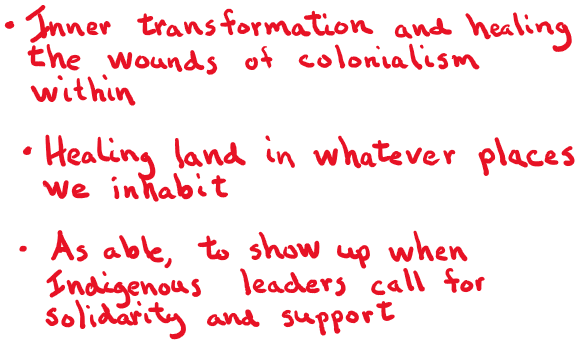 • Inner transformation and healing
the wounds of colonialism
within
• Healing land in whatever places
we inhabit
• As able, to show up when
Indigenous leaders call for
solidarity and support